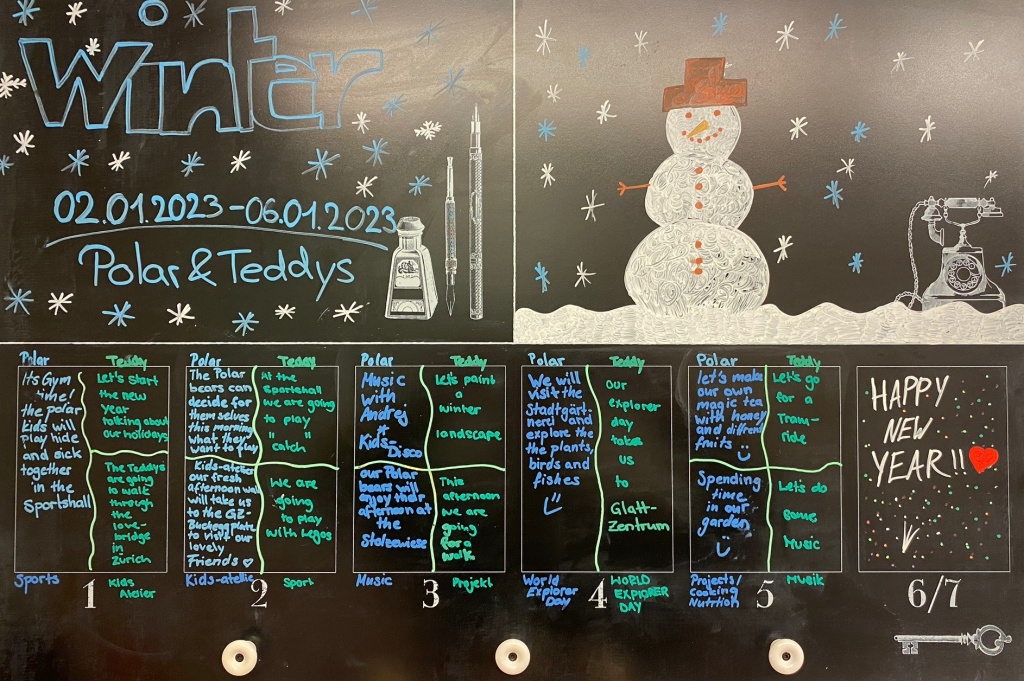 Winter
02.01.2023-06.01.2023
Polar & Teddys
Polar
Its Gym
time!
the polar
Kids will
play hide
and sick
together
in the
Sportshall
Sports
Teddy
Let's start
the new
year
talking about
our holidays
The Teddys
are going
to walk
through
the
love-
bridge
in
Zürich
Kids
Atelier
1
Polar
The Polar
bears can
decide for
them selves
this morning
what they
want to play
Kids-atelier
our fresh
afternoon walk
will take us
to the GZ-
Bucheggplatz
to visit our
lovely
Friends
Kids-atelier
Teddy
At the
Sportshall
we are going
to play
"catch"
We are
going
to play
with Legos
Sport
2
Polar
Music
with
Andrej
Kids-
Disco
our Polar
bears will
enjoy their
afternoon at
the
Stolzewiese
Music
Teddy
Let's paint
a
winter
landscape
This
afternoon
we are
going
for a
walk
Projekt
3
Polar
We will
visit the
Stadtgärt-
nerei and
explore the
the plants,
birds and
fishes
World
Explorer
Day
Teddy
our
explorer
day
takes
us
to
Glatt-
Zentrum
WORLD
EXPLORER
DAY
4
Polar
let's make
our own
magic tea
with honey
and different
fruits
Spending
time
in our
garden
Projects/
Cooking
Nutrition
Teddy
Let's go
for a
Tram-
ride
Let's do
some
Music
Musik
5
HAPPY
NEW
YEAR!!
6/7